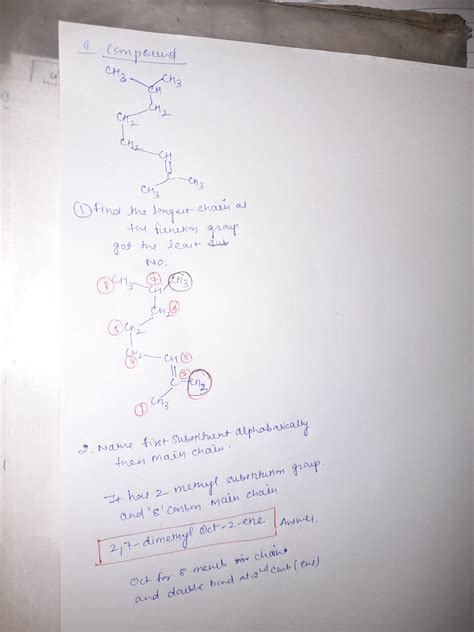 Compound
CH3 CH3
CH
CH2
CH2
CH2
CH
C
CH3 CH3
① Find the longest chain as
the function group
got the least
No.
⑧ CH3 ⑦ CH CH3
CH2 ⑥
⑤ CH2
CH2 ④
CH ③
② C CH2
① CH3
2. Name first substituent alphabatically
then main chain.
It has 2 methyl substitution group.
and '8' carbon main chain
2,7-dimethyl Oct-2-ene Answer.
Oct for 8 memb chain
and double bond at 2nd carb (ene)